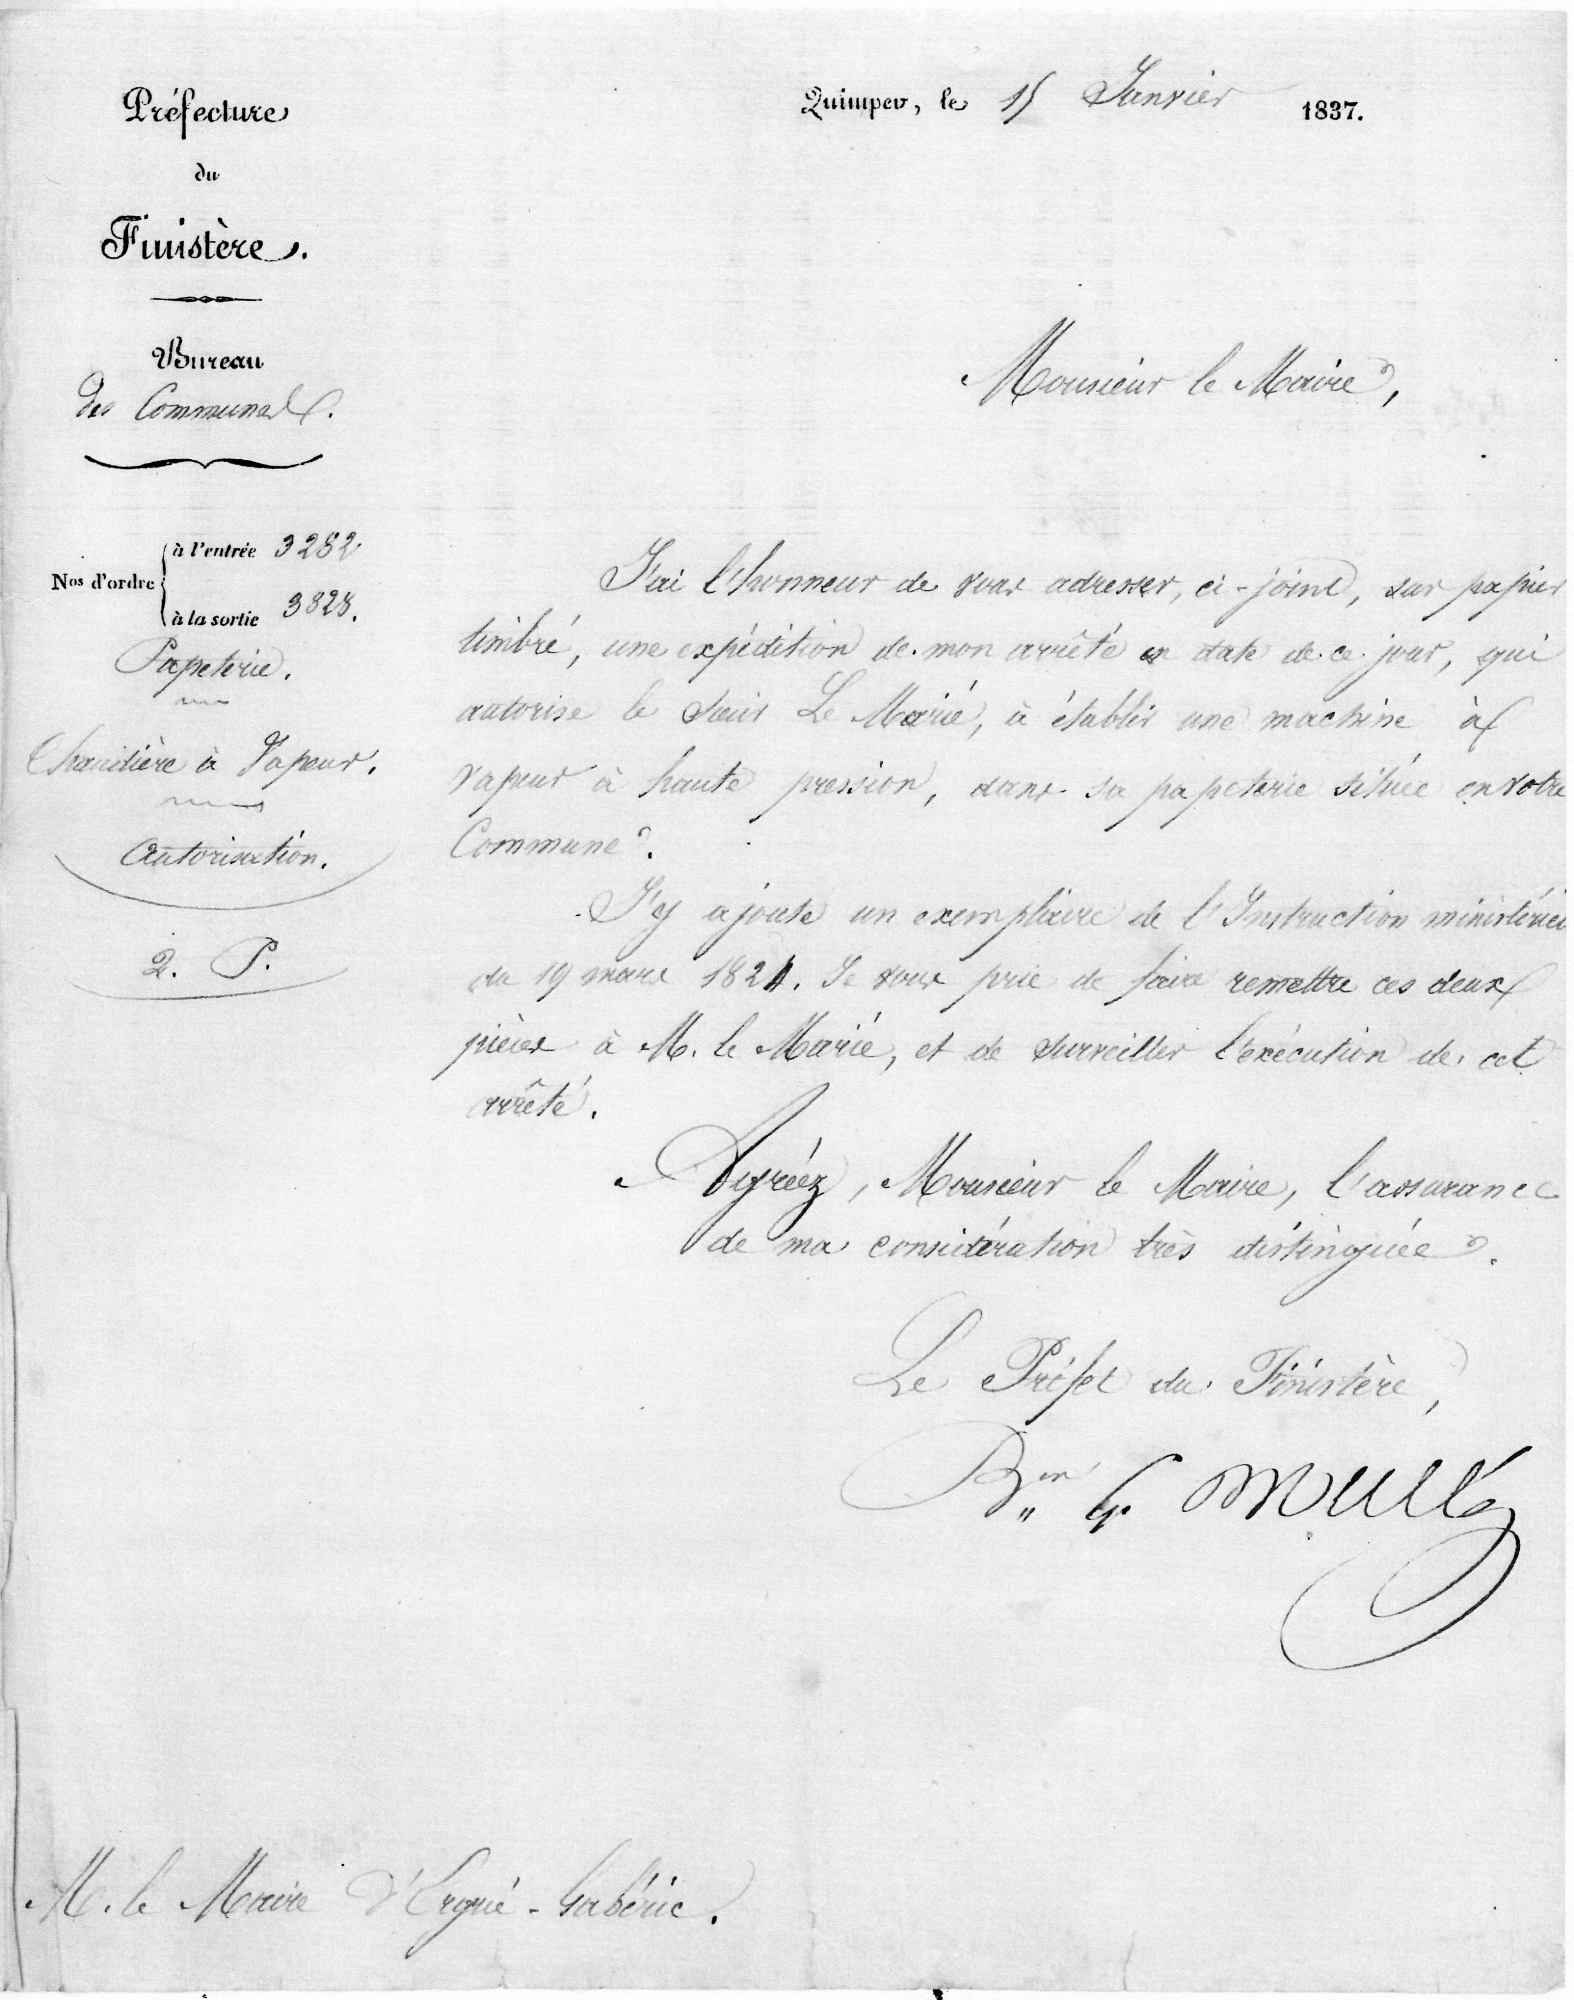 Préfecture
du
Finistère.
Bureau
des Communes.
Nos d'ordre
à l'entrée 3282
à la sortie 3328.
Papeterie.
Chaudière à Vapeur.
Autorisation.
2. P.
Quimper, le 15 Janvier 1837.
Monsieur le Maire,
J'ai l'honneur de vous adresser, ci-joint, sur papier
timbré, une expédition de mon arrêté en date de ce jour, qui
autorise le Sieur Le Marié, à établir une machine à
vapeur à haute pression, dans sa papeterie située en votre
Commune.
J'y ajoute un exemplaire de l'Instruction ministériel
du 19 mars 1824. Je vous prie de faire remettre ces deux
pièces à M. le Marié, et de surveiller l'exécution de cet
arrêté.
Agréez, Monsieur le Maire, l'assurance
de ma considération très distinguée.
Le Préfet du Finistère,
Bon
M. le Maire d'Ergué-Gabéric.